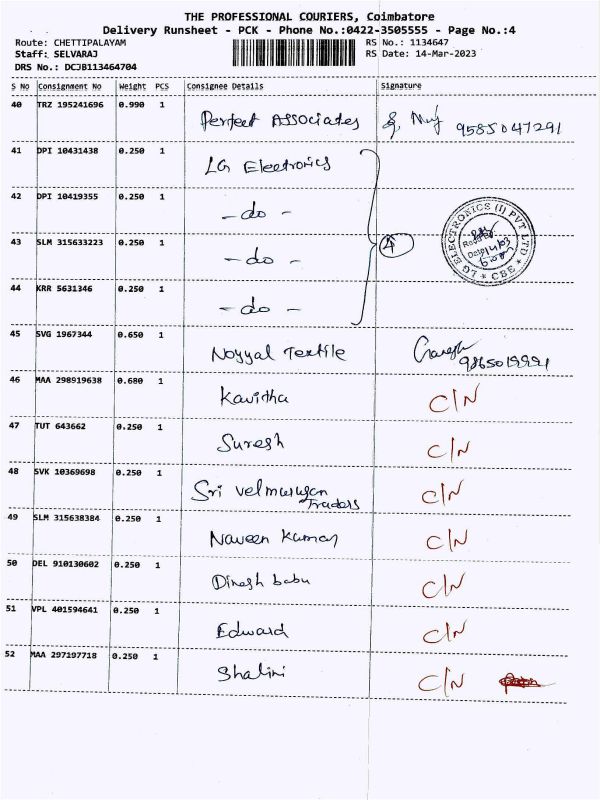 THE PROFESSIONAL COURIERS, Coimbatore
Delivery Runsheet - PCK - Phone No.:0422-3505555 - Page No.:4
Route: CHETTIPALAYAM RS No.: 1134647
Staff: SELVARAJ RS Date: 14-Mar-2023
DRS No.: DCJB113464704
S No Consignment No Weight PCS Consignee Details Signature
40 TRZ 195241696 0.990 1 Perfect Associates 9585047291
41 DPI 10431438 0.250 1 LG Electronics
42 DPI 10419355 0.250 1 - do -
43 SLM 315633223 0.250 1 - do - 4 LG ELECTRONICS (I) PVT LTD * CBE *
44 KRR 5631346 0.250 1 - do -
45 SVG 1967344 0.650 1 Noyyal Textile Ganesh
46 MAA 298919638 0.680 1 Kavitha C/N
47 TUT 643662 0.250 1 Suresh C/N
48 SVK 10369698 0.250 1 Sri Velmurugan Traders C/N
49 SLM 315638384 0.250 1 Naveen Kumar C/N
50 DEL 910130602 0.250 1 Dinesh babu C/N
51 VPL 401594641 0.250 1 Edward C/N
52 MAA 297197718 0.250 1 Shalini C/N